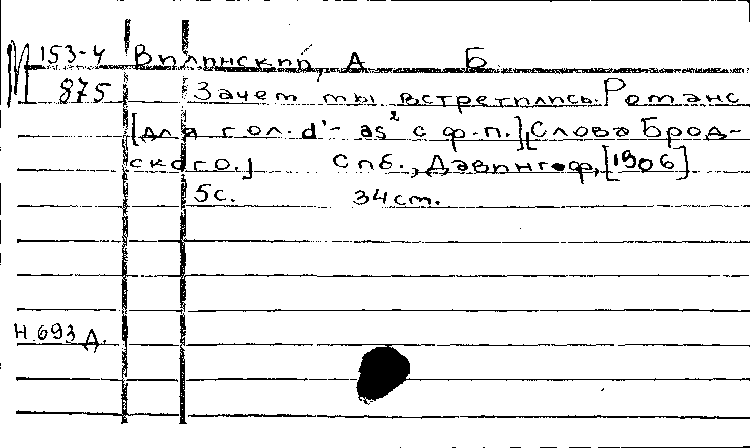 М 153-4 Вилинский, А Б
875 Зачем ты встретилась. Романс
[для гол. d'- as² с ф-п.] [Слова Брод-
ского.] Спб., Давингоф, [1906]
5с. 34 см.
Н 693 д.